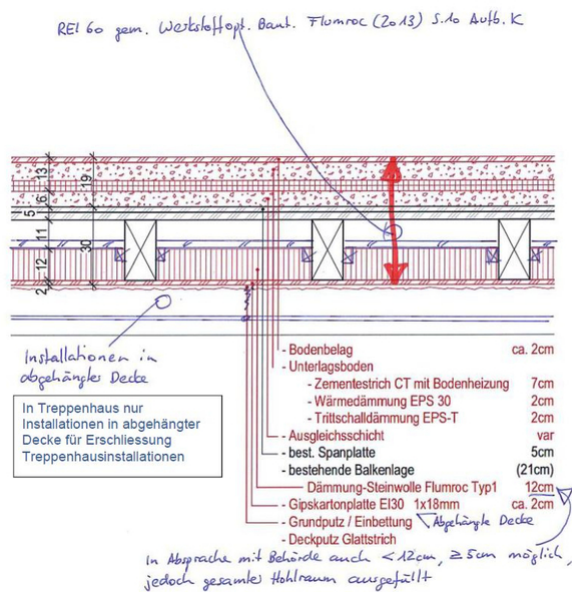 REI 60 gem. Werkstoffopt. Baut. Flumroc (2013) S.10 Aufb. K
13
19
6
5
11
30
12
2
Installationen in
abgehängter Decke
In Treppenhaus nur
Installationen in abgehängter
Decke für Erschliessung
Treppenhausinstallationen
- Bodenbelag ca. 2cm
- Unterlagsboden
- Zementestrich CT mit Bodenheizung 7cm
- Wärmedämmung EPS 30 2cm
- Trittschalldämmung EPS-T 2cm
- Ausgleichsschicht var
- best. Spanplatte 5cm
- bestehende Balkenlage (21cm)
Dämmung-Steinwolle Flumroc Typ1 12cm
- Gipskartonplatte EI30 1x18mm ca. 2cm
- Grundputz / Einbettung Abgehängte Decke
- Deckputz Glattstrich
in Absprache mit Behörde auch < 12cm, ≥ 5cm möglich,
jedoch gesamter Hohlraum ausgefüllt